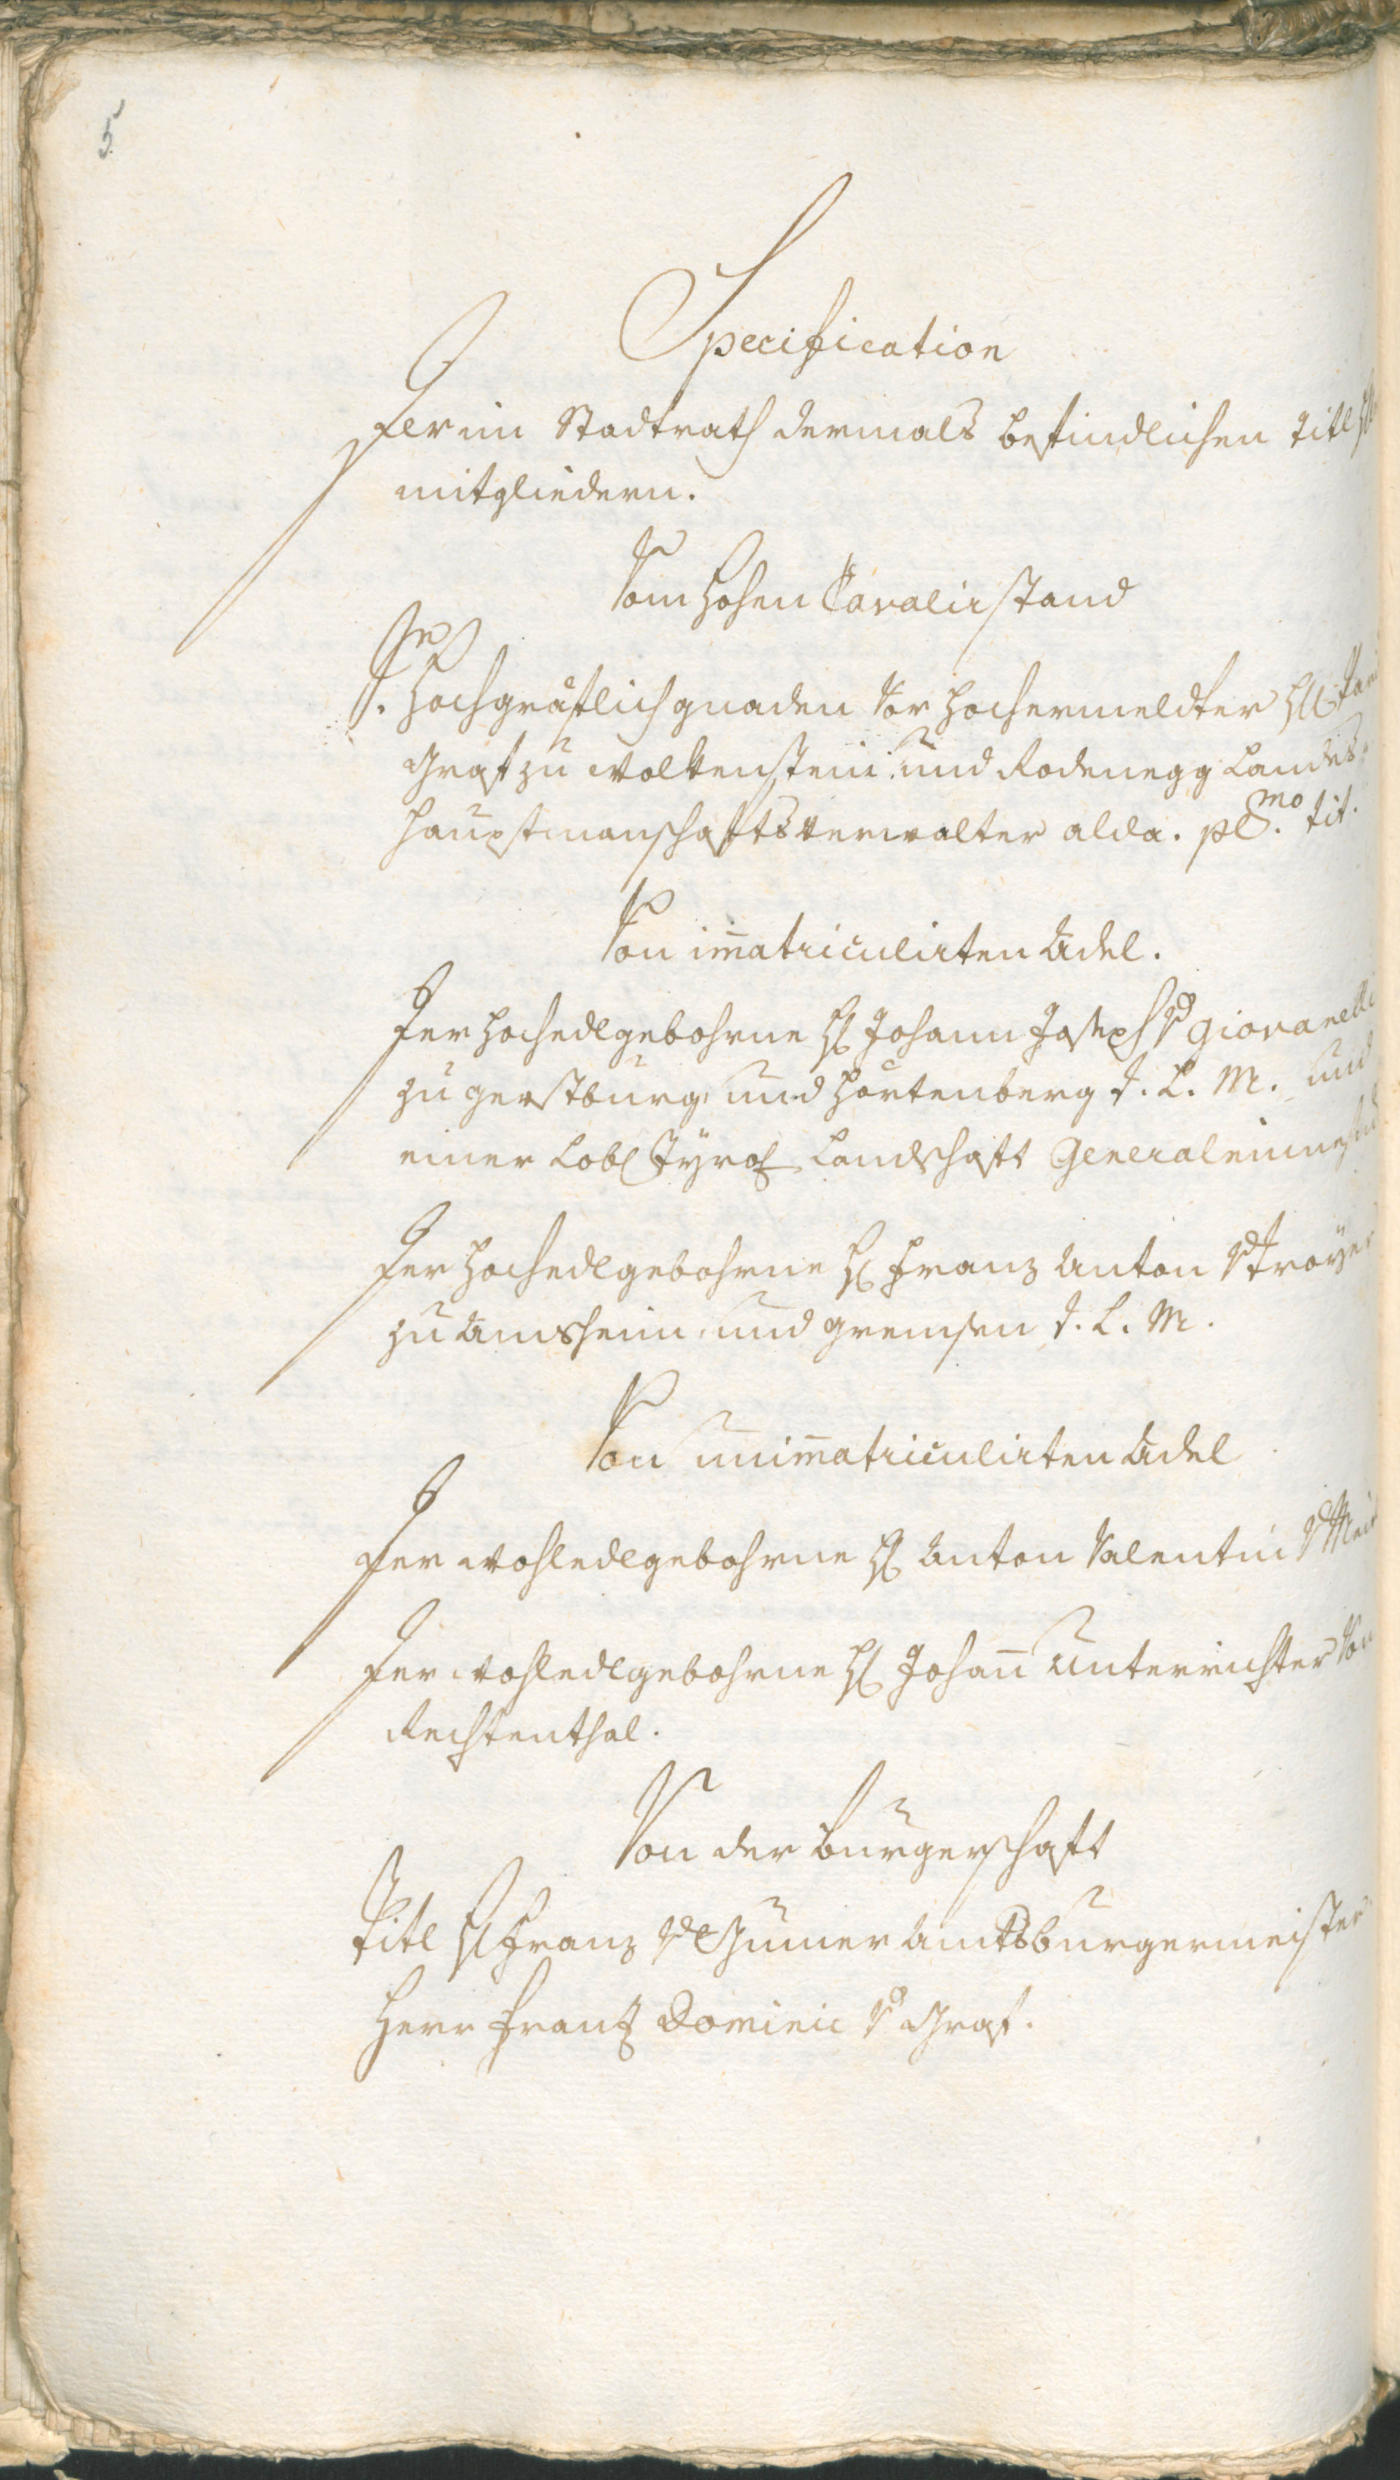 5
Specification
Der im Stadtrath dermals befindlichen Titl
mitgliedern.
Vom Hohen Cavalierstand
S. Hochgräflich gnaden vor hochermeldter H.
Graf zu Wolkenstein und Rodenegg Landes-
haubtmanschaftsverwalter alda. pl.mo tit.
Von im̄atriculirten Adel.
Der Hochedlgebohrne H. Johann Joseph v. Giovanelli
zu Gerstburg und Hörtenberg T. L. M. und
einer Lobl. Tyrol. Landschaft General
Der Hochedlgebohrne H. Franz Anton v. Troyer
zu Aursheim und Gremsen T. L. M.
Von unim̄atriculirten Adel
Der Wohledlgebohrne H. Anton Valentin v.
Der Wohledlgebohrne H. Johan̄ Unterrichter von
Rechtenthal.
Von der Burgerschaft
Titl H. Franz v. Gumer Amtsburgermeister
Herr Frantz Dominic v. Graf.